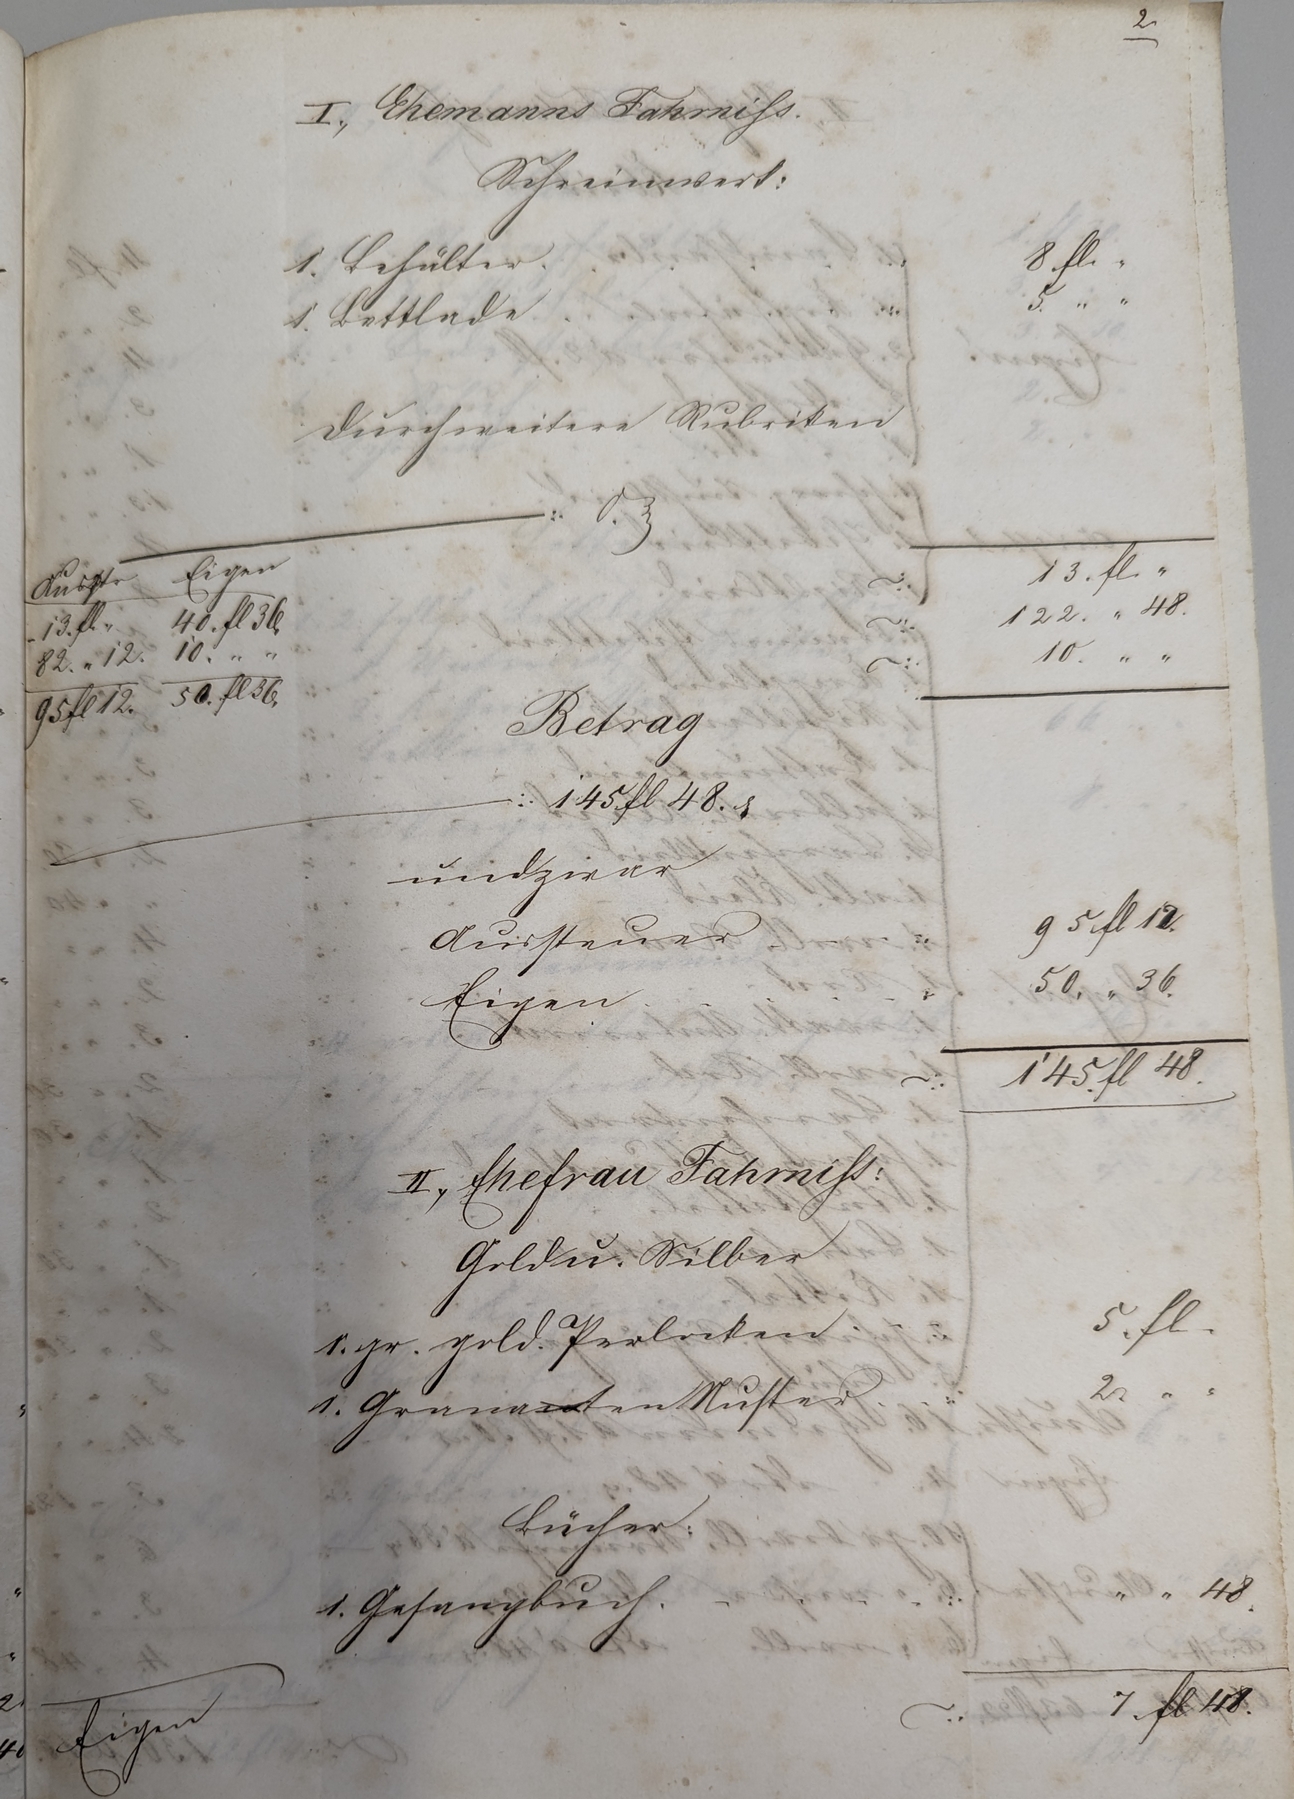 2
I., Ehemanns Fahrniß.
Schreinwerk:
1. Behälter. 8 fl. "
1. Bettlade 5. " "
Durch weitere Rubriken
O.
13. fl. "
122. " 48.
10. " "
Ausstr Eigen
13. fl. " 40. fl 36.
82. " 12. 10. " "
95 fl 12. 50. fl 36.
Betrag
145 fl 48.
und zwar
Aussteuer 95 fl 12.
Eigen 50. " 36.
145. fl 48.
II., Ehefrau Fahrniß:
Gold u. Silber
1. gr. gold. Perlocken 5. fl.
1. Granaten Nuster. 2. " "
Bücher:
1. Gesangbuch. " " 48.
7. fl 48.
Eigen